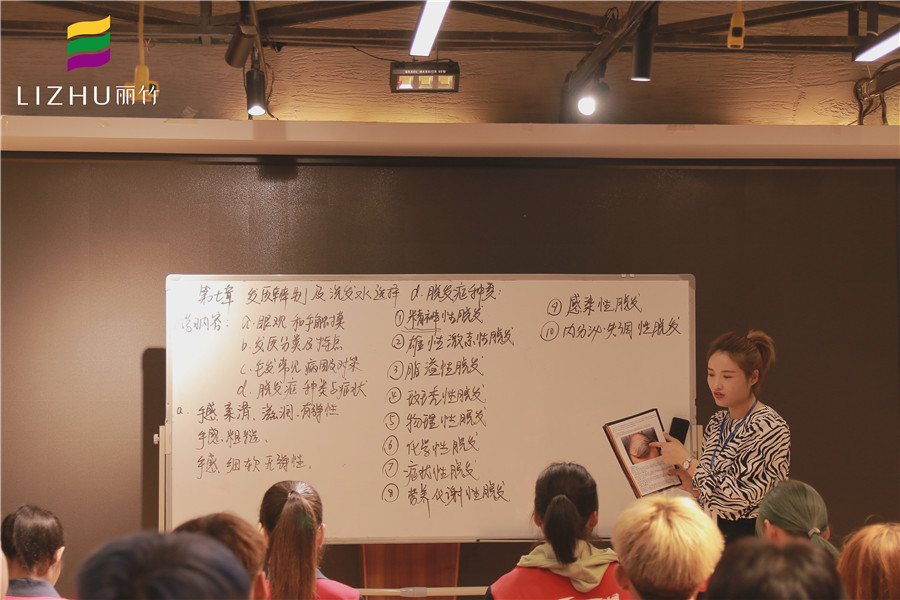 LIZHU丽竹
第七章 发质辨别及洗发水选择
学习内容: a.眼观和手触摸
b.发质分类及特点
c.毛发常见病因及对策
d.脱发症种类与症状
a. 手感柔滑、滋润、有弹性
手感.粗糙.
手感.细软无弹性.
d.脱发症种类:
①精神性脱发
②雄性激素性脱发
③脂溢性脱发
④ 性脱发
⑤物理性脱发
⑥化学性脱发
⑦症状性脱发
⑧营养代谢性脱发
⑨感染性脱发
⑩内分泌失调性脱发